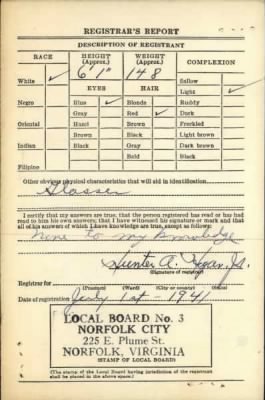 REGISTRAR'S REPORT
DESCRIPTION OF REGISTRANT
RACE HEIGHT (Approx.) WEIGHT (Approx.) COMPLEXION
6'1" 148
White ✓ Sallow
EYES HAIR Light ✓
Negro Blue ✓ Blonde Ruddy
Gray Red ✓ Dark
Oriental Hazel Brown Freckled
Brown Black Light brown
Indian Black Gray Dark brown
Bald Black
Filipino
Other obvious physical characteristics that will aid in identification
Glasses
I certify that my answers are true; that the person registered has read or has had
read to him his own answers; that I have witnessed his signature or mark and that
all of his answers of which I have knowledge are true, except as follows:
None to my knowledge
Hunter A. Jr.
(Signature of registrar)
Registrar for
(Precinct) (Ward) (City or county) (State)
Date of registration July 1st - 1941
LOCAL BOARD No. 3
NORFOLK CITY
225 E. Plume St.
NORFOLK, VIRGINIA
(STAMP OF LOCAL BOARD)
(The stamp of the Local Board having jurisdiction of the registrant
shall be placed in the above space.)